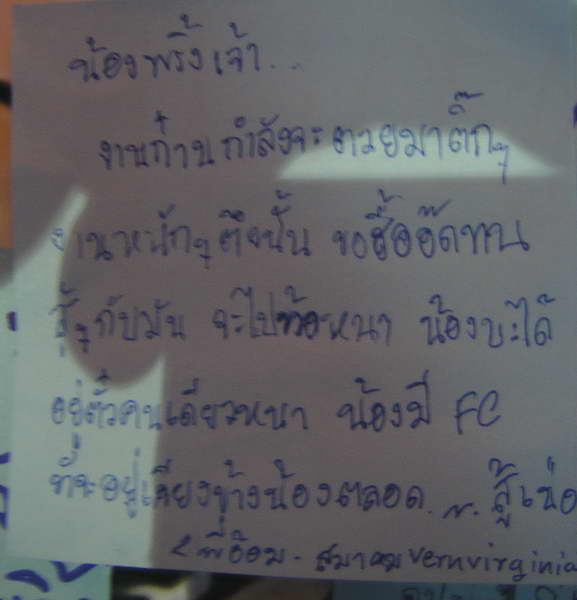 น้องพริ้งเจ้า...
งานก๋านกำลังจะตวยมาติ๊กๆ
งานหนักๆ ตึงนั้น ขอฮื้ออ๊ดทน
สู้ๆ กับมัน จะไปท้อหนา น้องบะได้
อยู่ตั๋วคนเดียวหนา น้องมี FC
ที่จะอยู่เคียงข้างน้องตลอด.. สู้เน่อ
พี่อ้อม - สมาคม vernvirginia